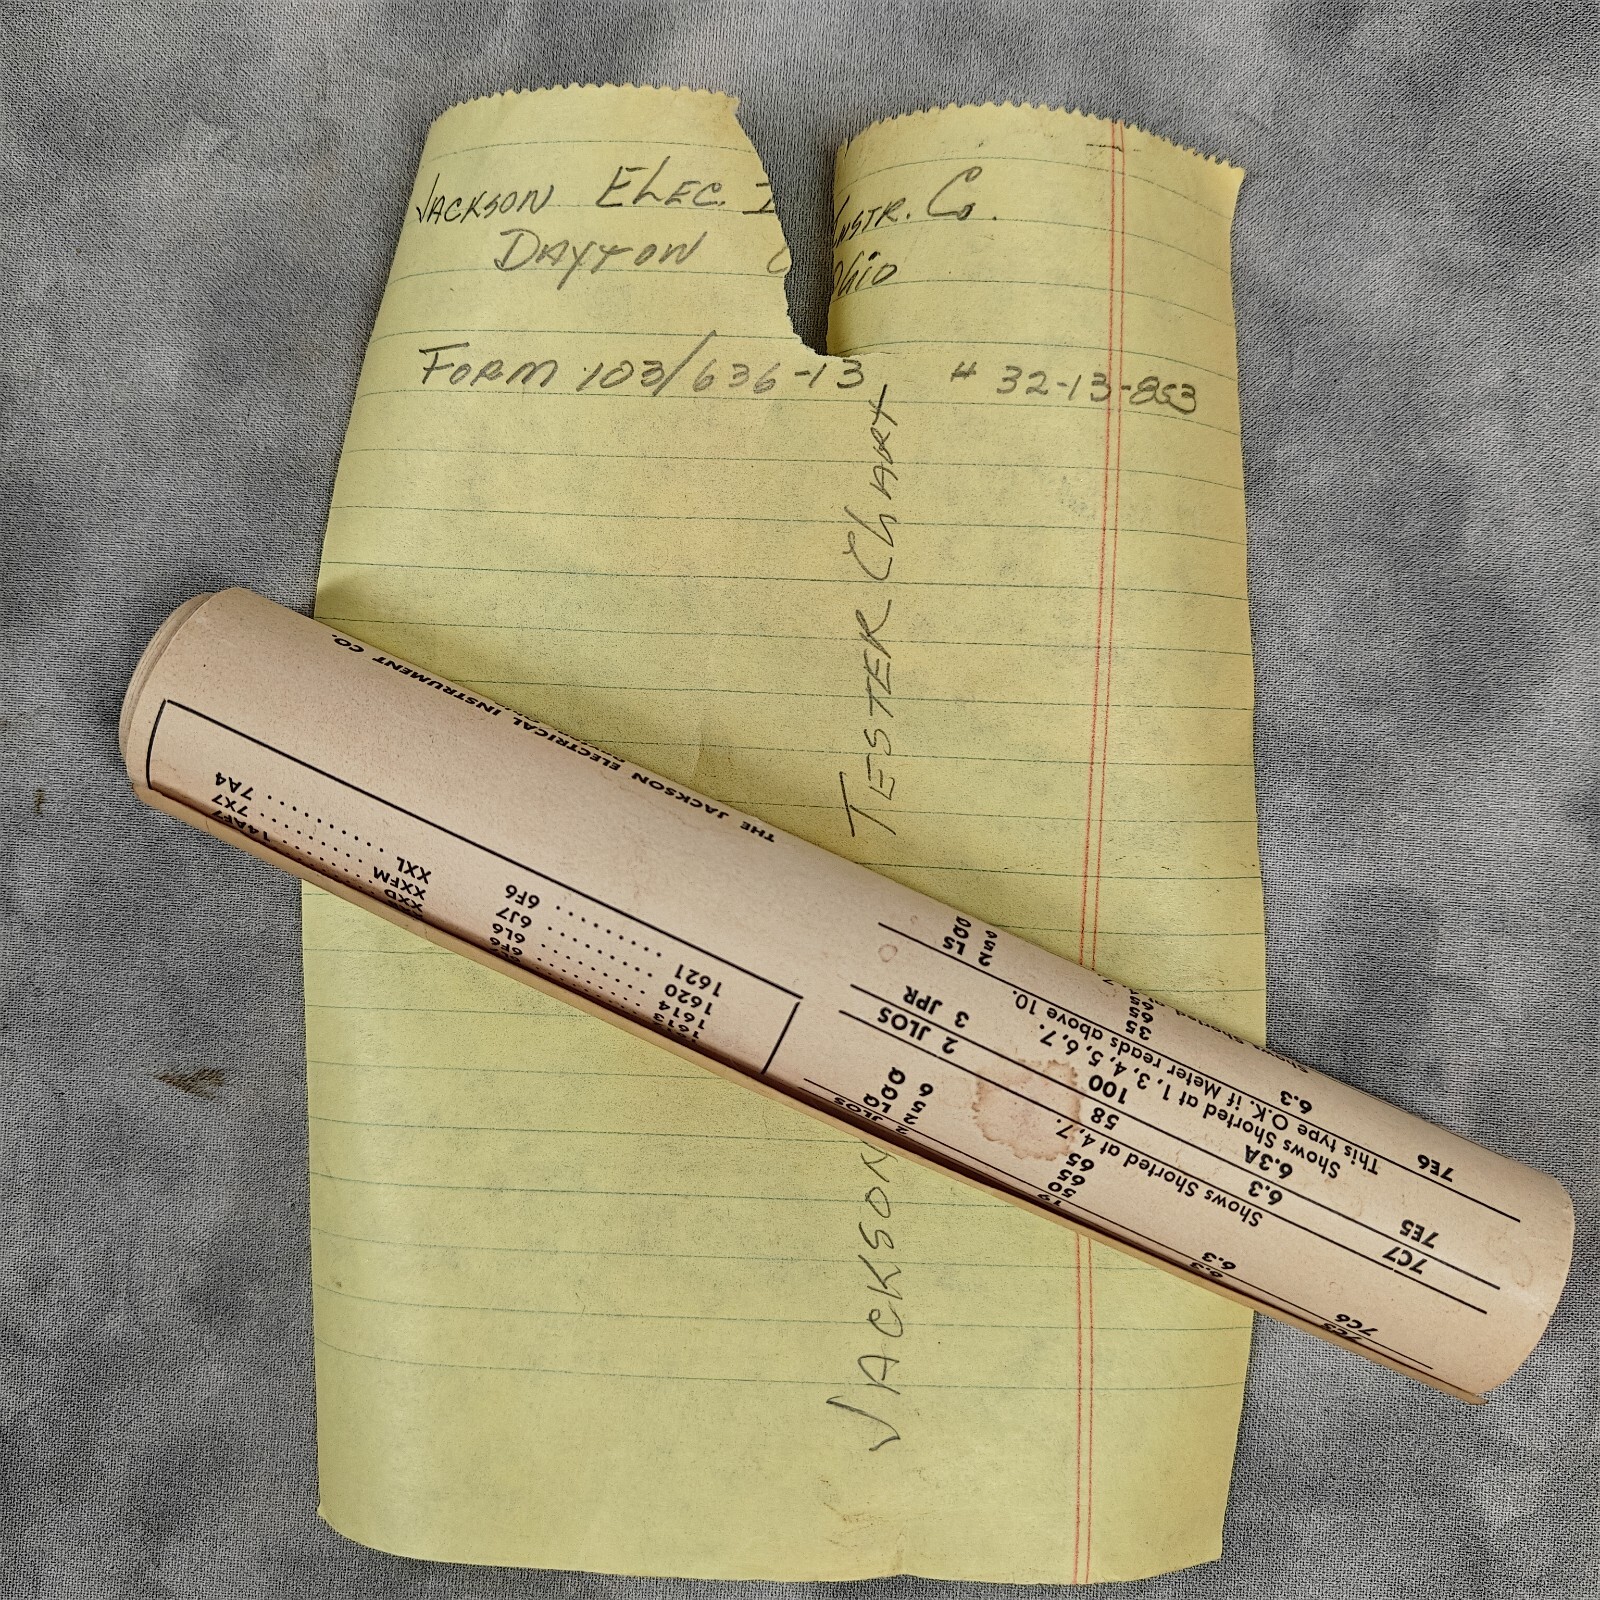 JACKSON ELEC. INSTR. Co.
DAYTON Ohio
FORM 103/636-13 # 32-13-853
JACKSON TESTER CHART
THE JACKSON ELECTRICAL INSTRUMENT CO.
1613
1614 6F6
1620 6L6
1621 6J7
6F6
XXD 14AF7
XXFM 7X7
XXL 7A4
7C5
7C6 6.3
6.3 50 JLOS
65 2 LQ
65 5 Q
6
Shows Shorted at 4,7.
7C7 6.3 58 2 JLOS
7E5 6.3A 100 3 JPR
Shows Shorted at 1,3,4,5,6,7.
This type O.K. if Meter reads above 10.
7E6 6.3 35 2 LS
65 Q